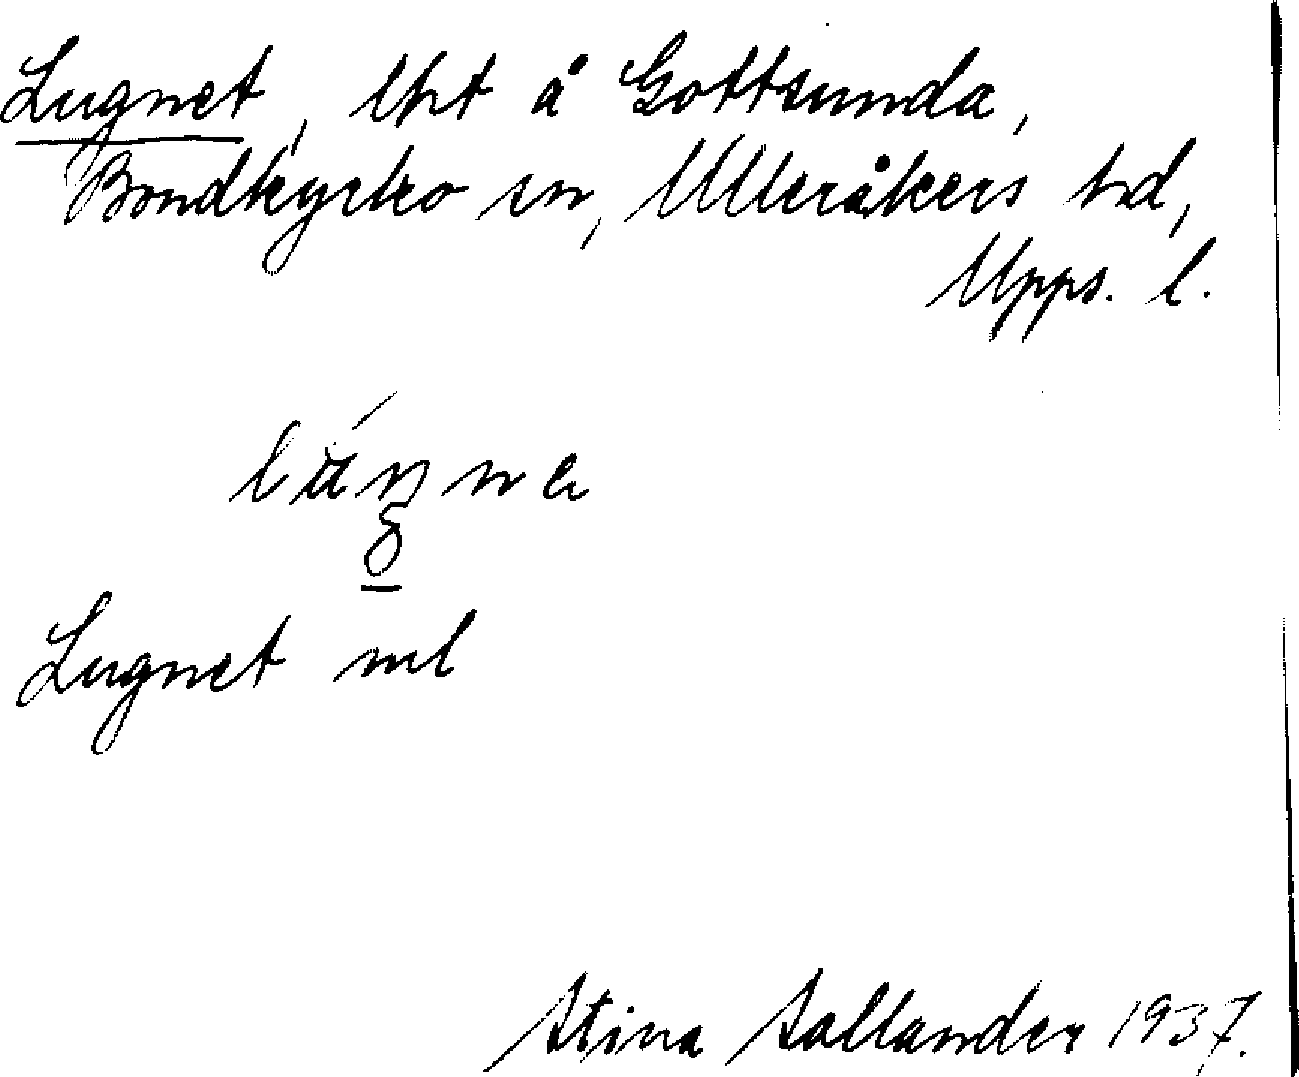 Lugnet, lht å Gottsunda,
Bondkyrko sn, Ulleråkers hd,
Upps. l.
Lugnet ml
Stina Sallander 1937.